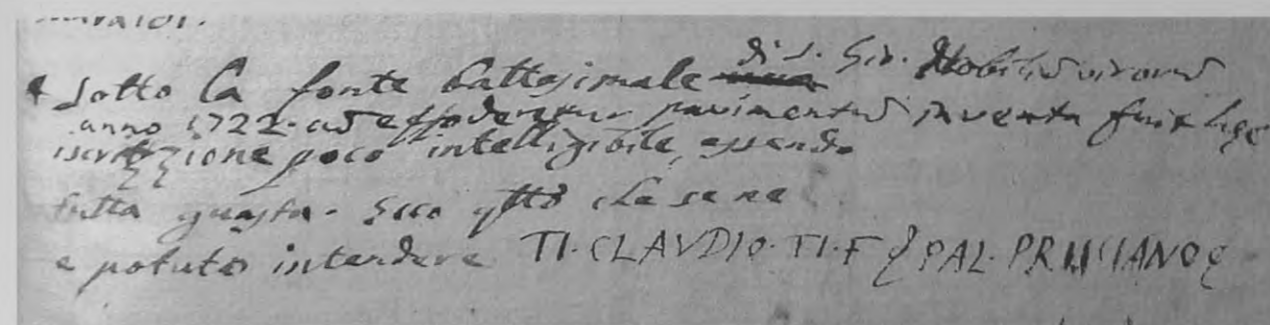 Sotto la fonte battesimale di S. Gio. Nobiliū virorū
anno 1722. cū effoderetur pavimentū inventa fuit
iscrizzione poco intelligibile, essendo
tutta guasta. Ecco qtto che se ne
e potuto intendere TI·CLAVDIO·TI·F PAL·PRISCIANO